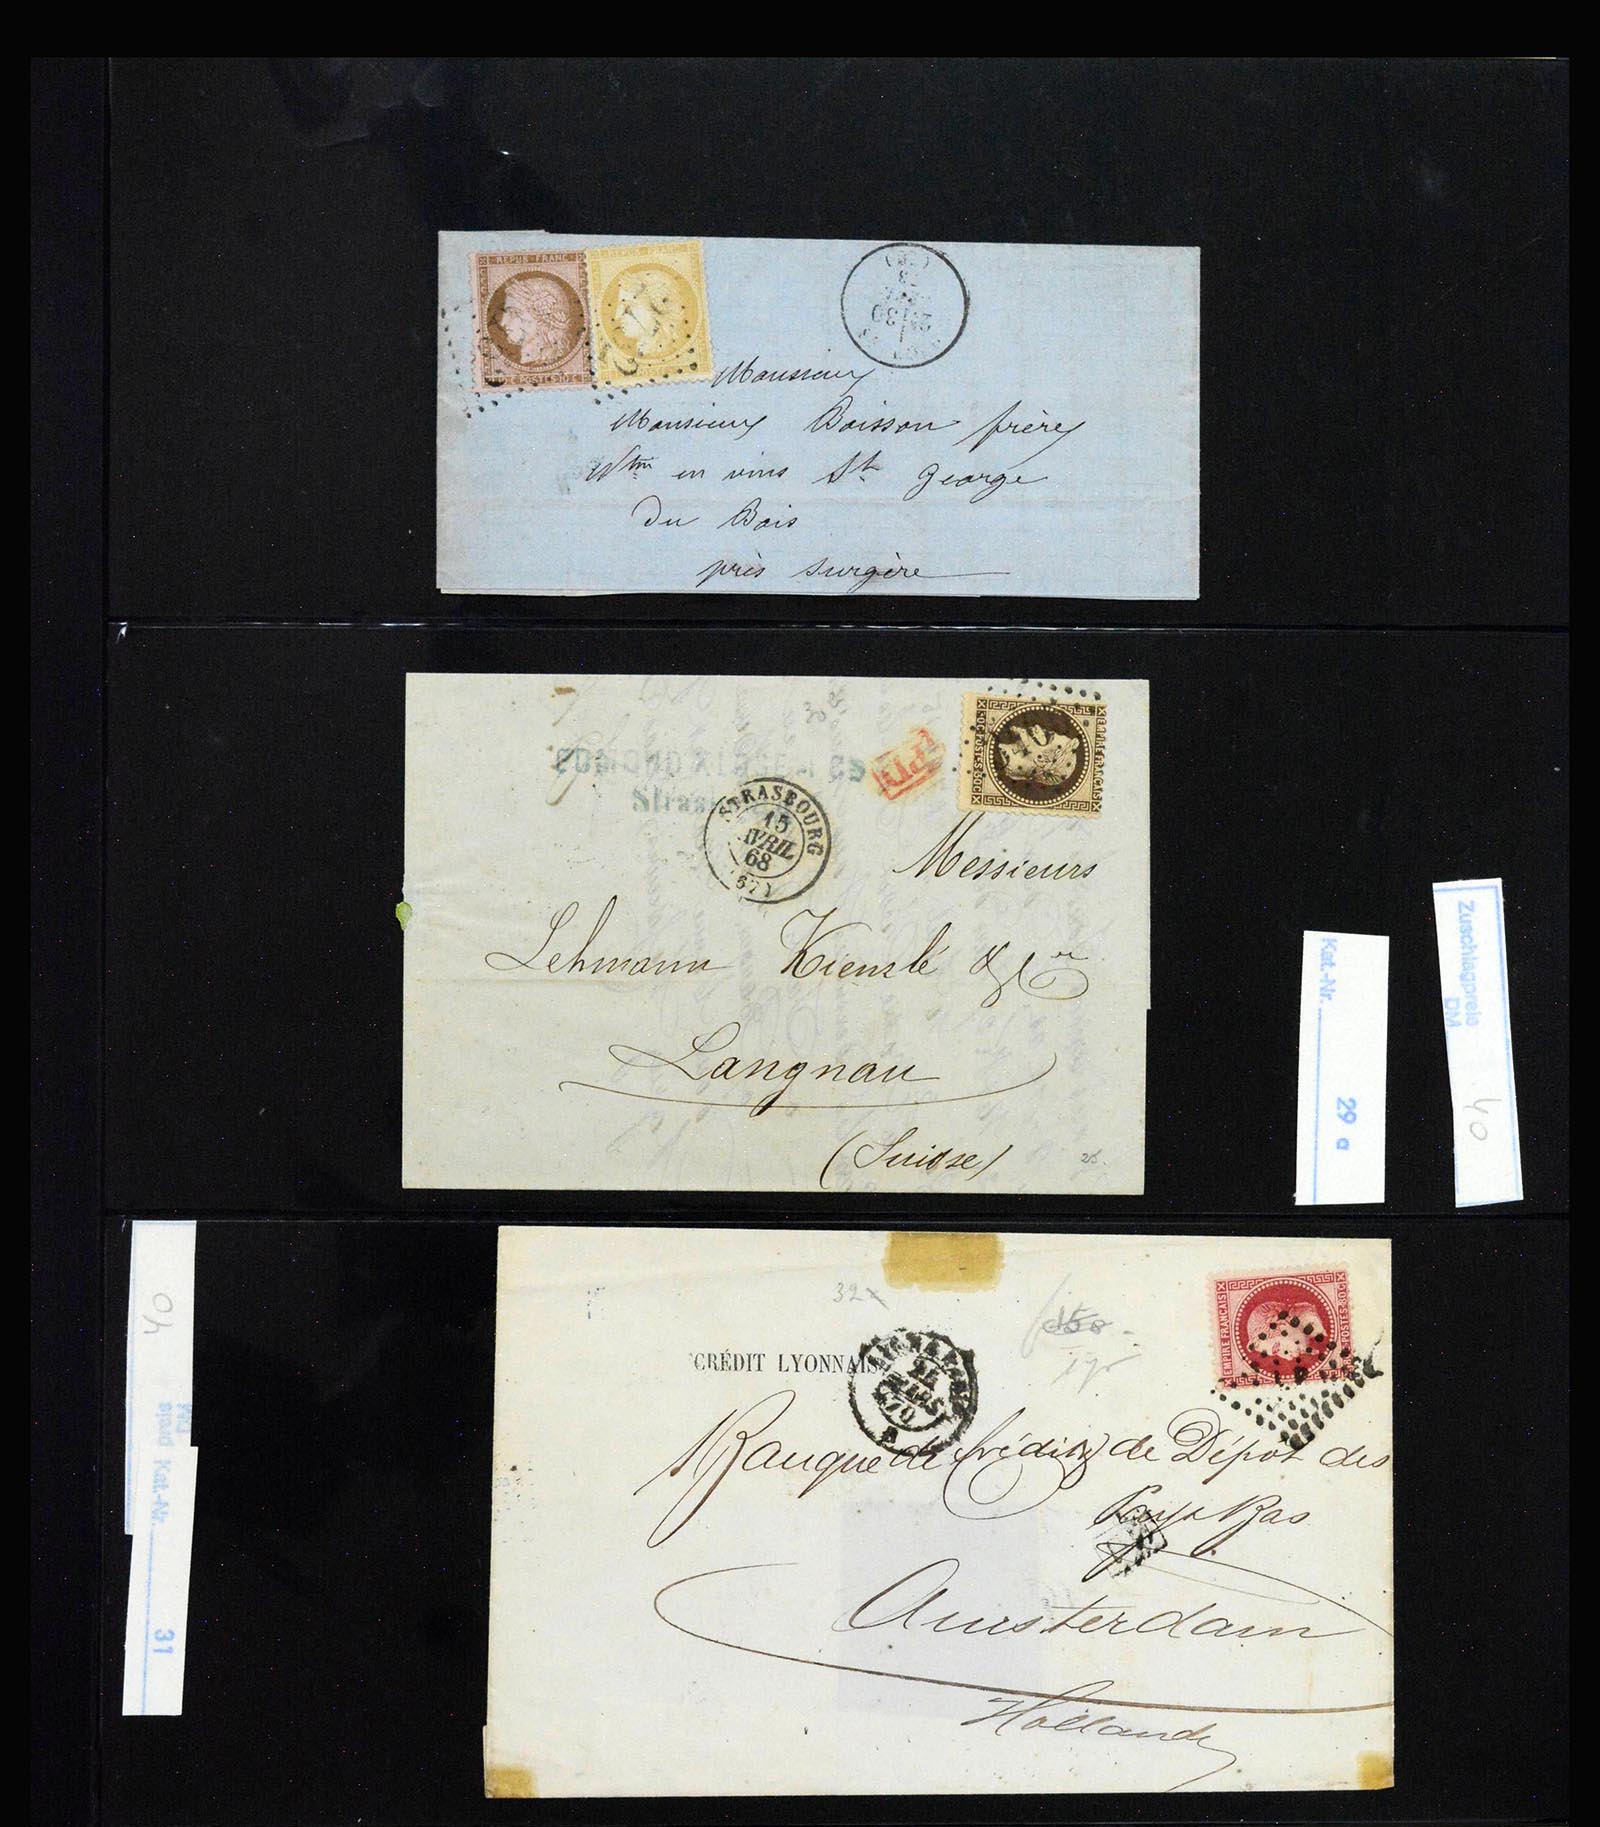 REPUB · FRANC
POSTES 10 C
REPUB FRANC
Monsieur
Monsieur Boisson frères
en vins St George
Du Bois
près Surgère
Stras
PD
EMPIRE FRANÇAIS
30 C POSTES 30 C
STRASBOURG
15
AVRIL
68
(67)
Messieurs
Lehmann Kienzlé & Cie
Langnau
(Suisse)
25.
Kat.-Nr. 29 a
Zuschlagpreis
DM 40
32
CRÉDIT LYONNAIS
MARS
70
EMPIRE FRANÇAIS
POSTES 80 C
Banque de Crédit & de Dépôt des
Pays Bas
Amsterdam
Hollande
40
Kat.-Nr. 31